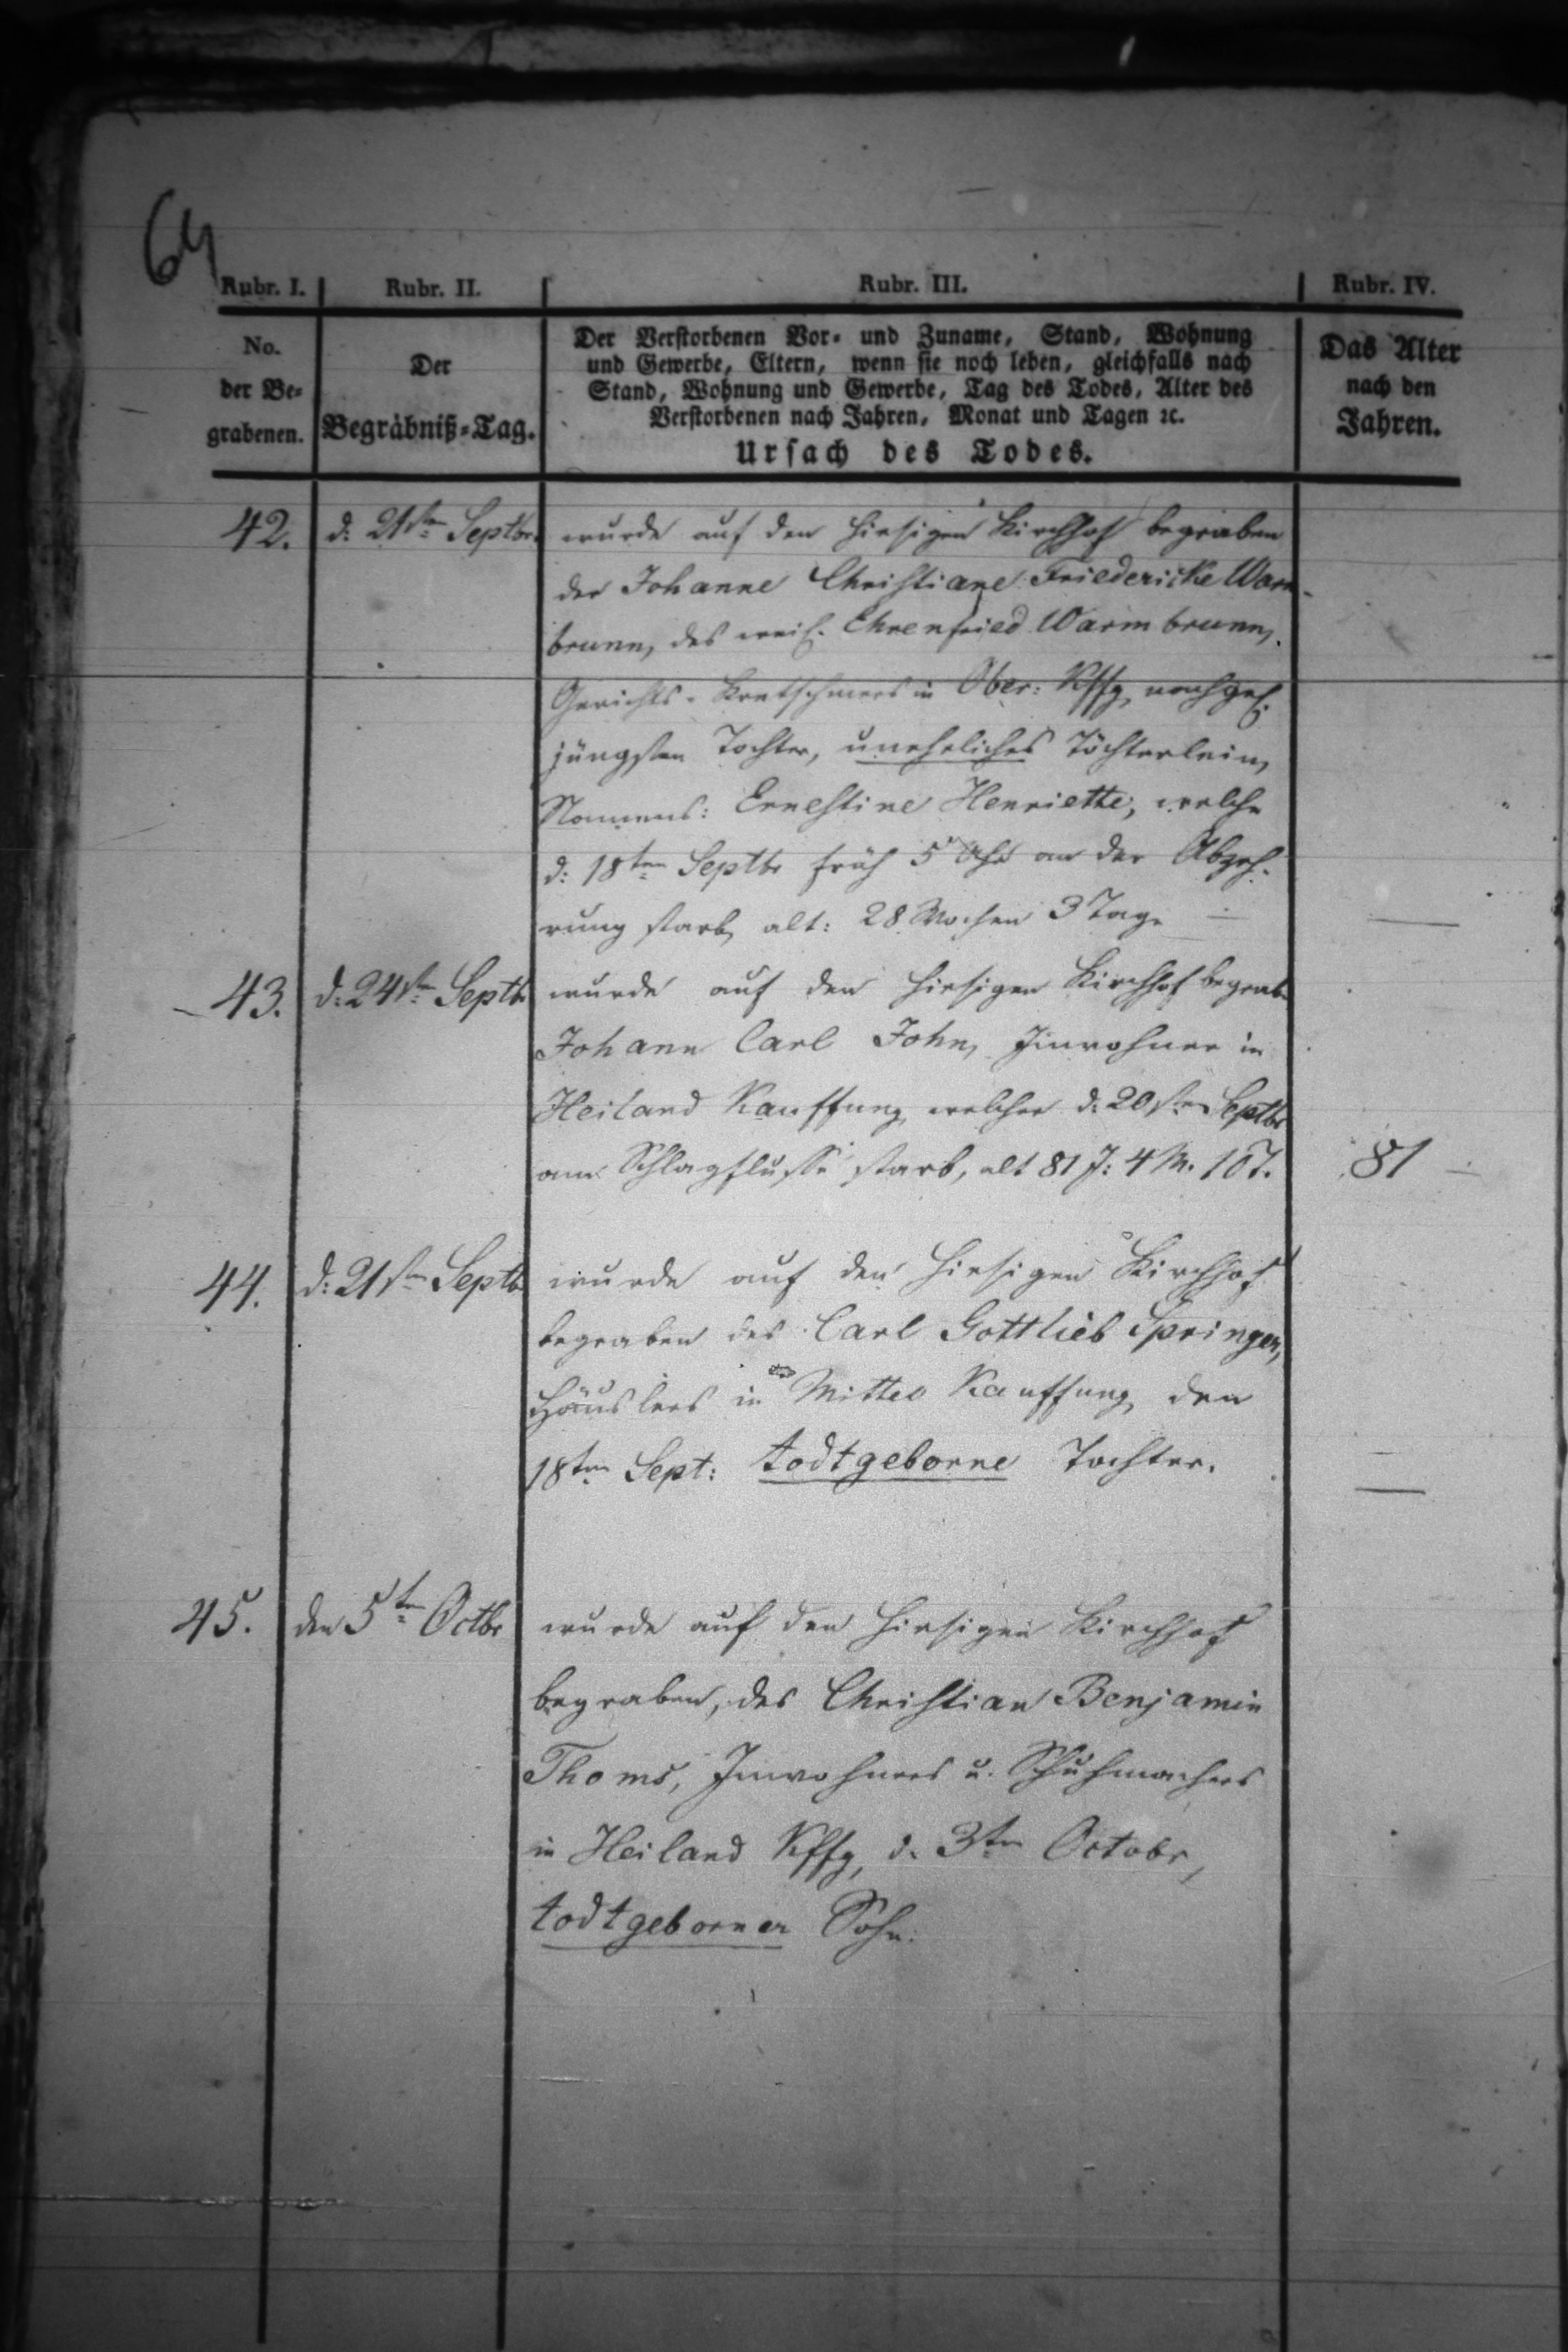 64
Rubr. I. Rubr. II. Rubr. III. Rubr. IV.
No. der Be- grabenen.
Der Begräbniß-Tag.
Der Verstorbenen Vor- und Zuname, Stand, Wohnung
und Gewerbe, Eltern, wenn sie noch leben, gleichfalls nach
Stand, Wohnung und Gewerbe, Tag des Todes, Alter des
Verstorbenen nach Jahren, Monat und Tagen ꝛc.
Ursach des Todes.
Das Alter
nach den
Jahren.
42. d: 21sten Septbr. wurde auf den hiesigen Kirchhof begraben
der Johanne Christiane Friedericke Warm-
brunn, des weil. Ehrenfried Warmbrunn,
Gerichts-Kretschmers in Ober: Kffg, nachgel.
jüngsten Tochter, uneheliches Töchterlein,
Namens: Ernestine Henriette, welche
d: 18ten Septbr früh 5 Uhr an der Abzeh-
rung starb, alt: 28 Wochen 3 Tage —
43. d: 24sten Septb wurde auf den hiesigen Kirchhof begrab
Johann Carl John, Inwohner in
Heiland Kauffung, welcher d: 20sten Septbr
am Schlagflusse starb, alt 81 J: 4 M. 10 T. 81
44. d: 21sten Septb wurde auf den hiesigen Kirchhof
begraben des Carl Gottlieb Springer,
Häuslers in Mittel Kauffung, den
18ten Sept: todtgeborne Tochter.
45. den 5ten Octbr wurde auf den hiesigen Kirchhof
begraben, des Christian Benjamin
Thoms, Inwohners u. Schuhmachers
in Heiland Kffg, d. 3ten Octobr,
todtgeborner Sohn.